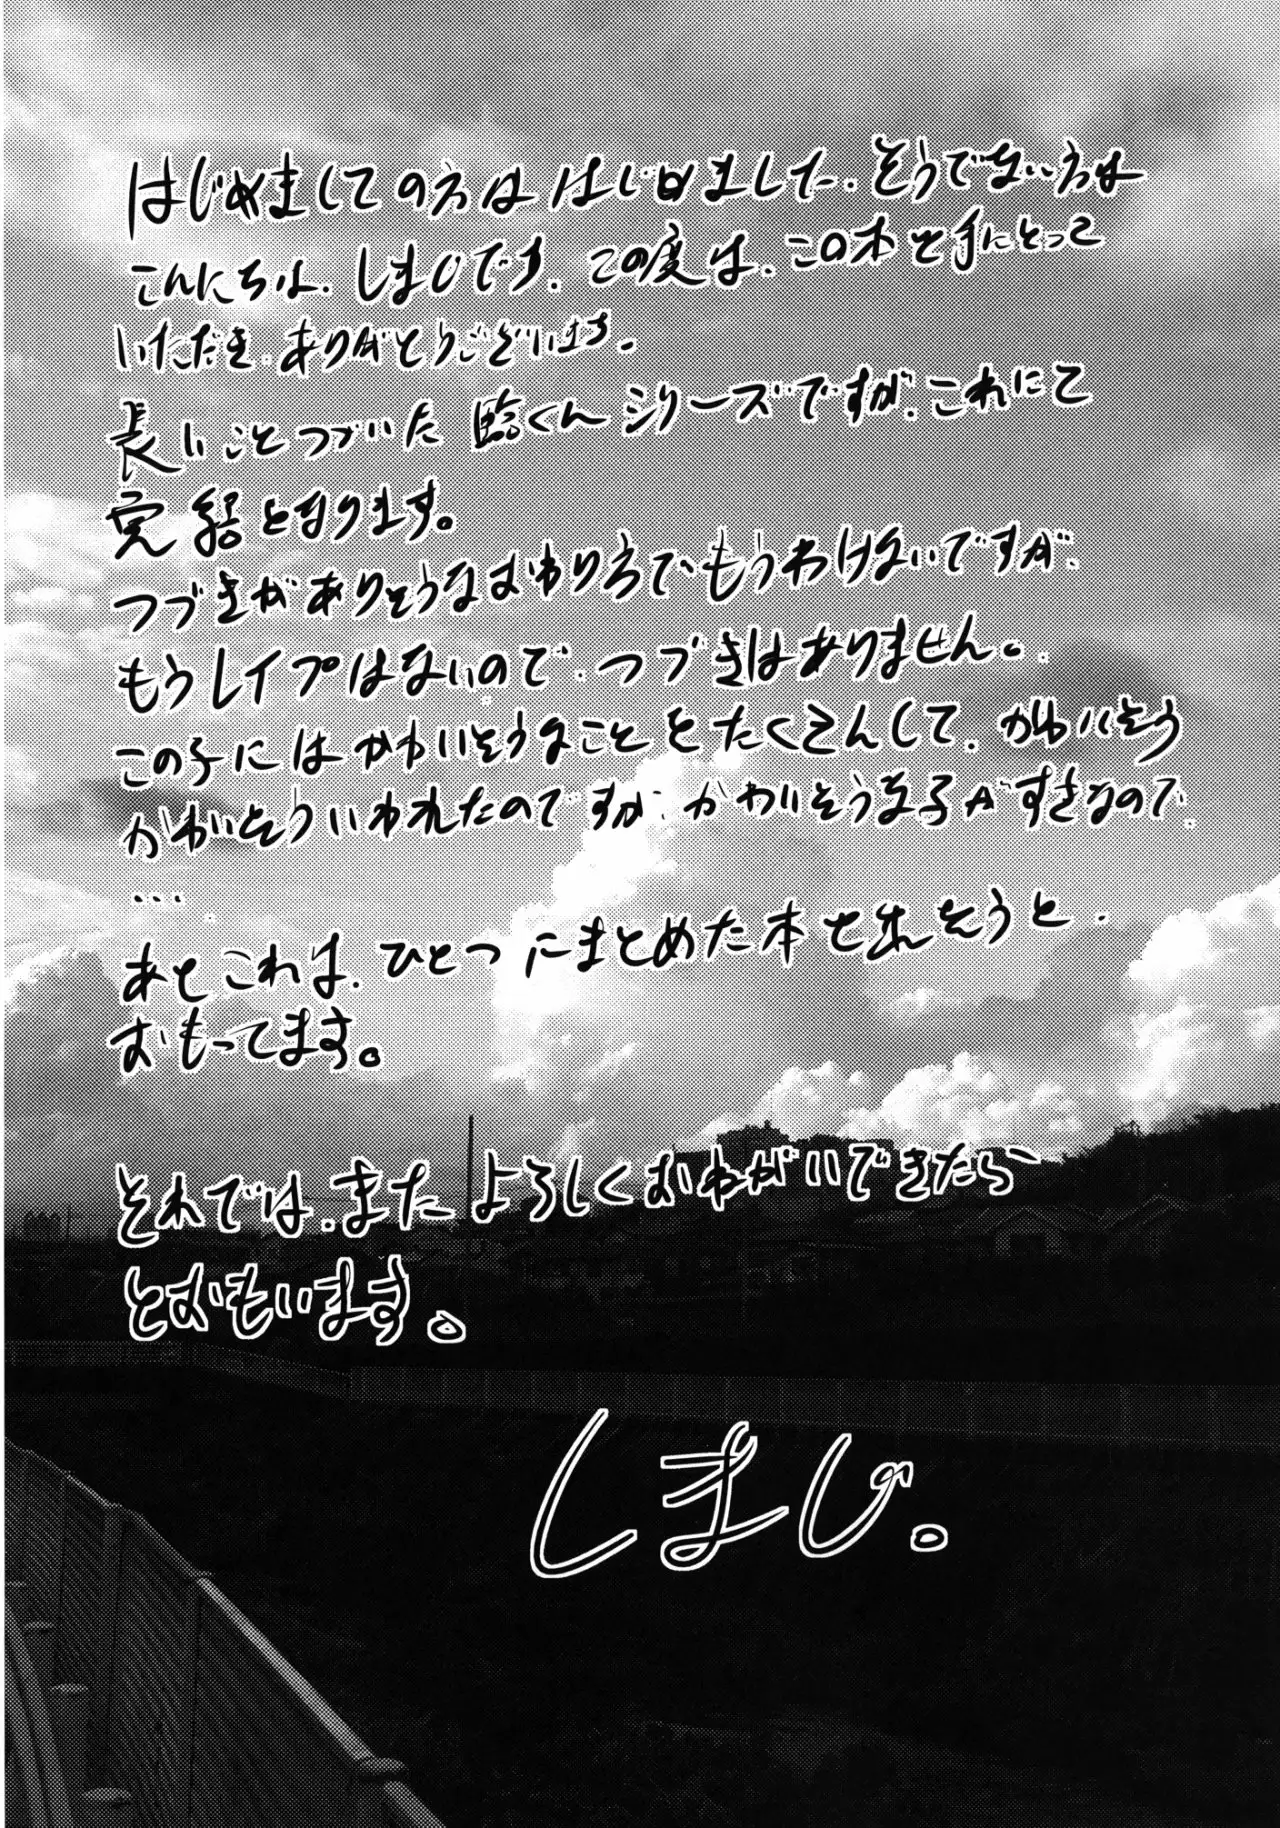 はじめましての方ははじめました.そうでない方は
こんにちは.しまじです.この度は.この本を手にとって
いただき.ありがとうございます.
長いことつづいた くんシリーズですが.これにて
完結となります。
つづきがありそうなおわり方でもうわけないですが.
もうレイプはないので.つづきはありません。
この子にはかわいそうなことをたくさんして.かわいそう
かわいそういわれたのですが.かわいそうな子がすきなので.
...
あとこれは.ひとつにまとめた本を出そうと.
おもってます。
それでは.またよろしくおねがいできたら
とおもいます。
しまじ。